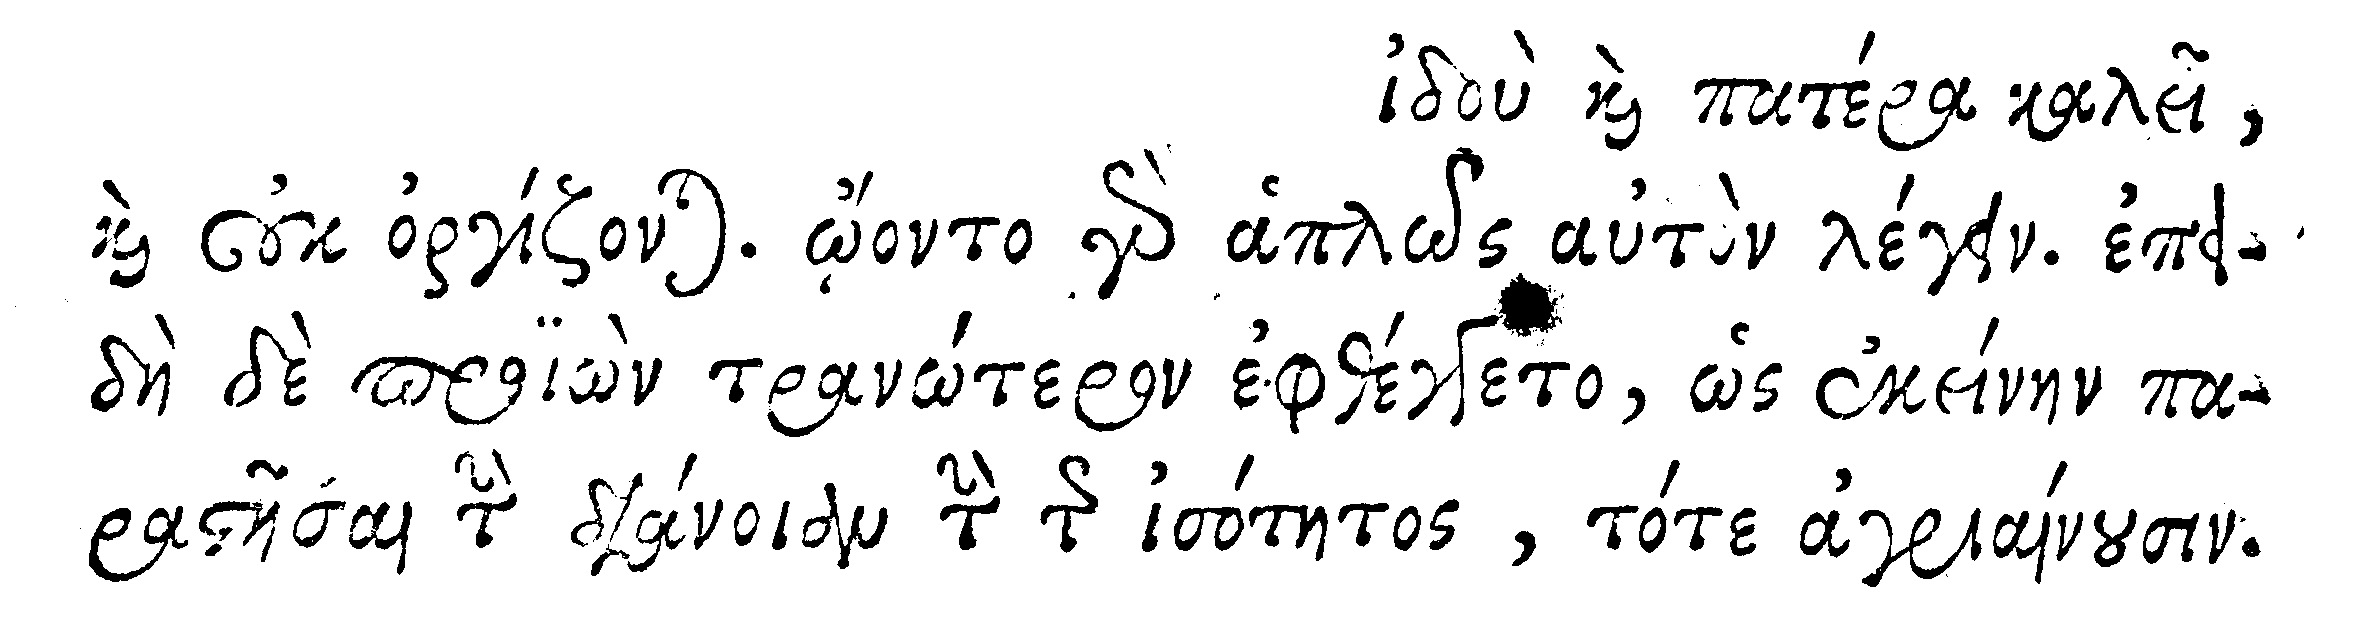 ἰδοὺ καὶ πατέρα καλεῖ,
καὶ οὐκ ὀργίζονται. ᾤοντο γὰρ ἁπλῶς αὐτὸν λέγειν. ἐπει-
δὴ δὲ προϊὼν τρανώτερον ἐφθέγγετο, ὡς ἐκείνην πα-
ραστῆσαι τὴν διάνοιαν τὴν τῆς ἰσότητος, τότε ἀγριαίνουσιν.